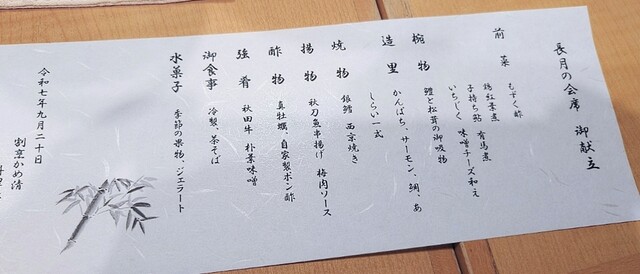 長月の会席 御献立
前菜 もずく酢
鶏紅茶煮
子持ち鮎 有馬煮
いちじく 味噌チーズ和え
椀物 鱧と松茸の御吸物
造里 かんぱち、サーモン、鯛、あ
しらい一式
焼物 銀鱈 西京焼き
揚物 秋刀魚串揚げ 梅肉ソース
酢物 真牡蠣、自家製ポン酢
強肴 秋田牛 朴葉味噌
御食事 冷製、茶そば
水菓子 季節の果物、ジェラート
令和七年九月二十日
割烹かめ清